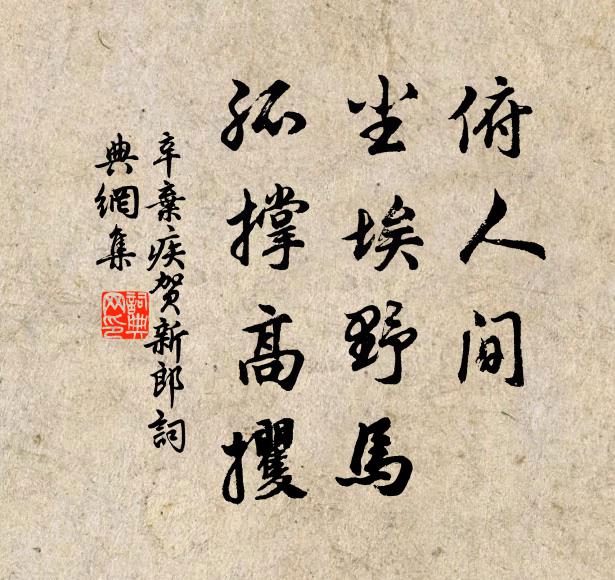 俯人间
尘埃野馬
孤撑高攫
辛棄疾贺新郎詞
典網集
詞典网印